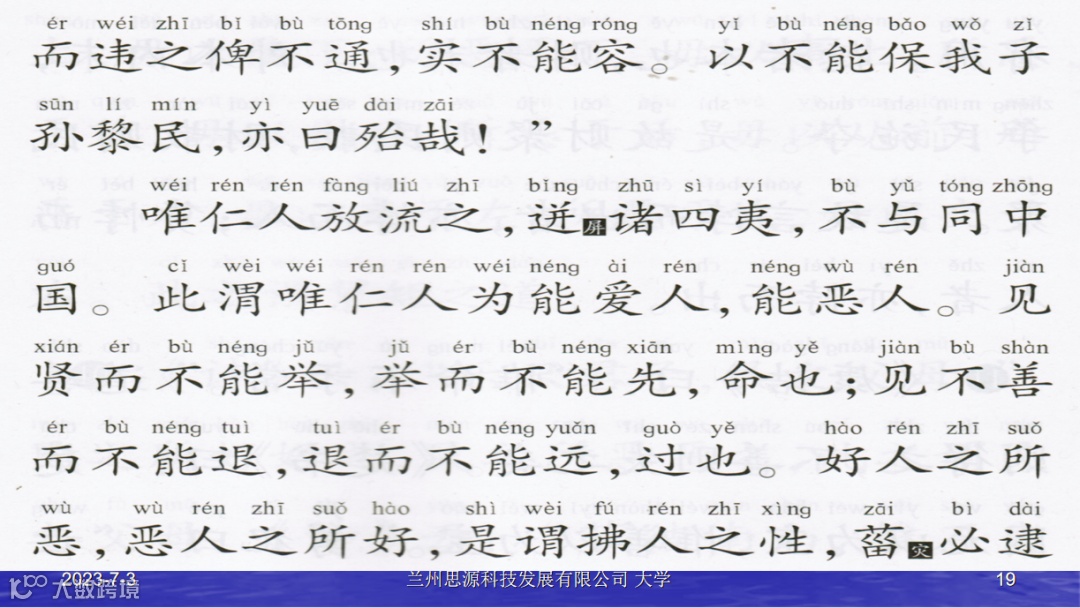 ér wéi zhī bǐ bù tōng shí bù néng róng yǐ bù néng bǎo wǒ zǐ
而违之俾不通,实不能容。以不能保我子
sūn lí mín yì yuē dài zāi
孙黎民,亦曰殆哉!”
wéi rén rén fàng liú zhī bǐng zhū sì yí bù yǔ tóng zhōng
唯仁人放流之,迸屏诸四夷,不与同中
guó cǐ wèi wéi rén rén wéi néng ài rén néng wù rén jiàn
国。此谓唯仁人为能爱人,能恶人。见
xián ér bù néng jǔ jǔ ér bù néng xiān mìng yě jiàn bù shàn
贤而不能举,举而不能先,命也;见不善
ér bù néng tuì tuì ér bù néng yuǎn guò yě hào rén zhī suǒ
而不能退,退而不能远,过也。好人之所
wù wù rén zhī suǒ hào shì wèi fú rén zhī xìng zāi bì dài
恶,恶人之所好,是谓拂人之性,菑灾必逮
2023-7-3 兰州思源科技发展有限公司 大学 19
大数跨境